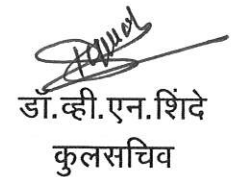 डॉ.व्ही.एन.शिंदे
कुलसचिव